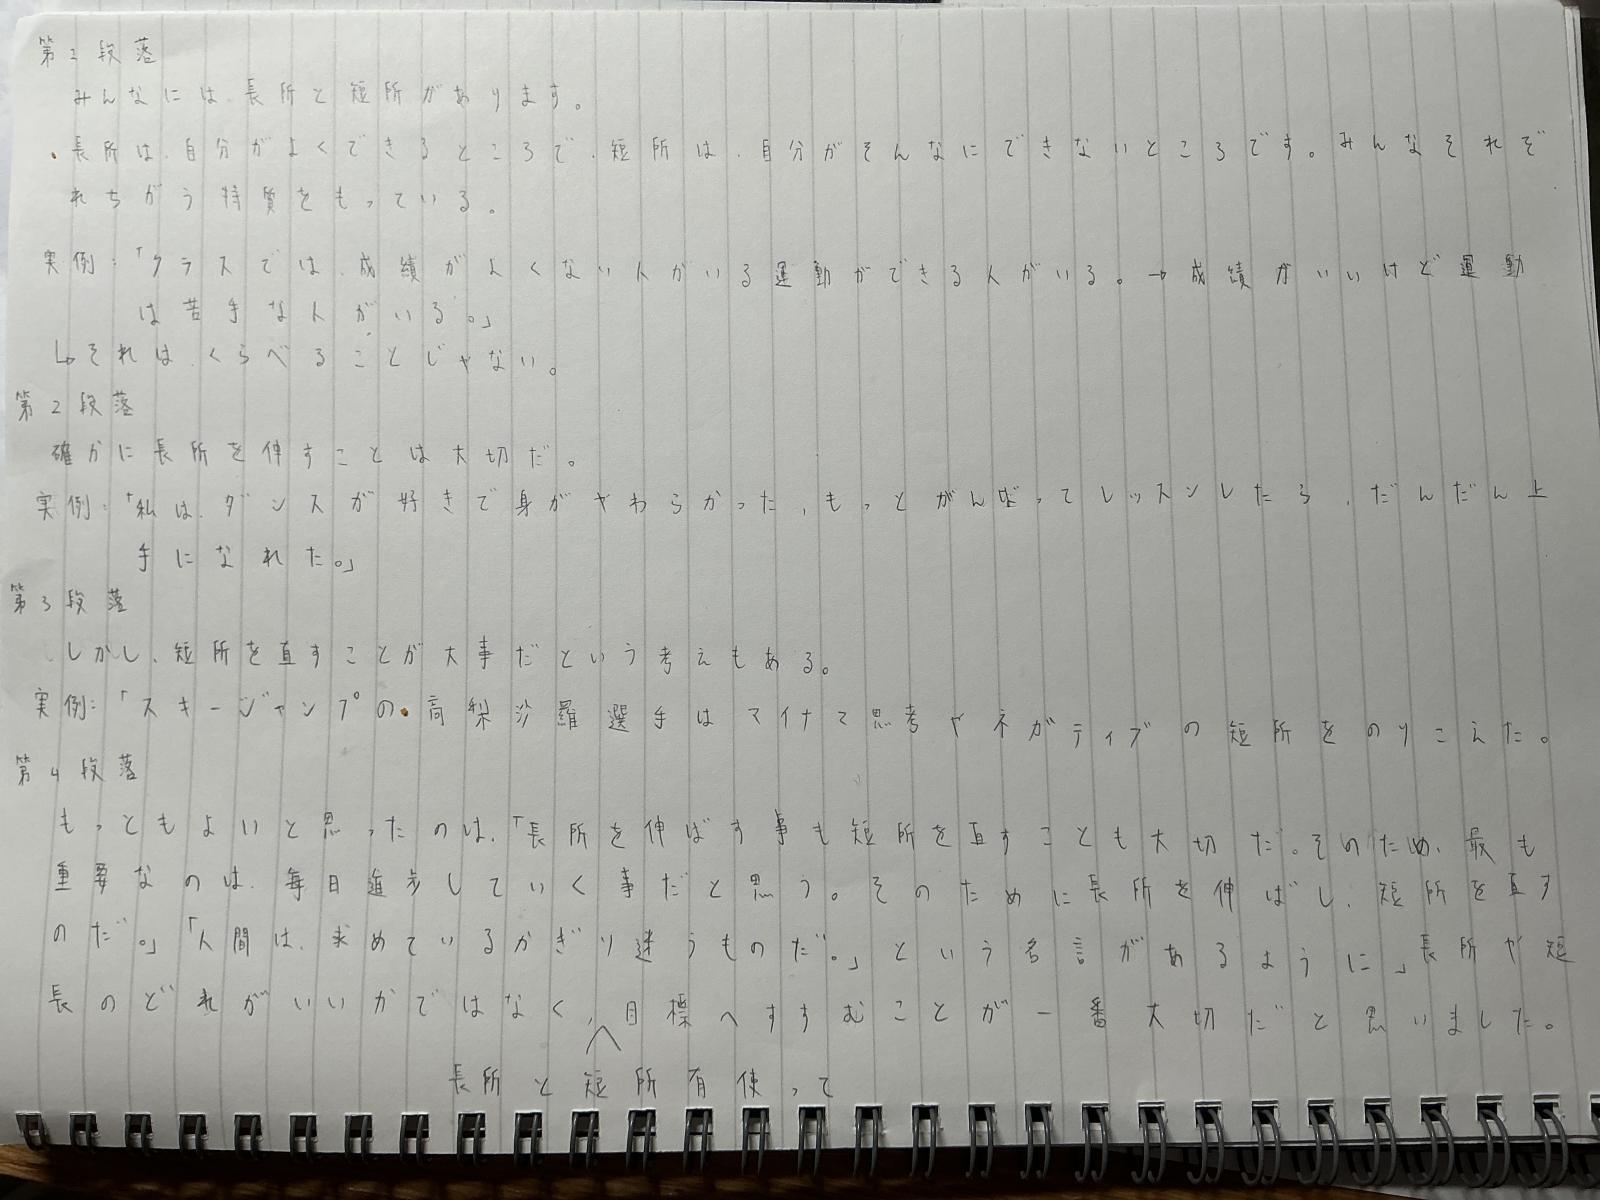 第1段落
みんなには、長所と短所があります。
・長所は、自分がよくできるところで、短所は、自分がそんなにできないところです。みんなそれぞ
れちがう特質をもっている。
実例：「クラスでは、成績がよくない人がいる運動ができる人がいる。→成績がいいけど運動
は苦手な人がいる。」
↳それは、くらべることじゃない。
第2段落
確かに長所を伸すことは大切だ。
実例：「私は、ダンスが好きで身がやわらかった、もっとがんばってレッスンしたら、だんだん上
手になれた。」
第3段落
しかし、短所を直すことが大事だという考えもある。
実例：「スキージャンプの・高梨沙羅選手はマイナて思考やネガティブの短所をのりこえた。
第4段落
もっともよいと思ったのは、「長所を伸ばす事も短所を直すことも大切だ。そのため、最も
重要なのは、毎日進歩していく事だと思う。そのために長所を伸ばし、短所を直す
のだ。」「人間は、求めているかぎり迷うものだ。」という名言があるように」長所や短
長のどれがいいかではなく、目標へすすむことが一番大切だと思いました。
長所と短所有使って